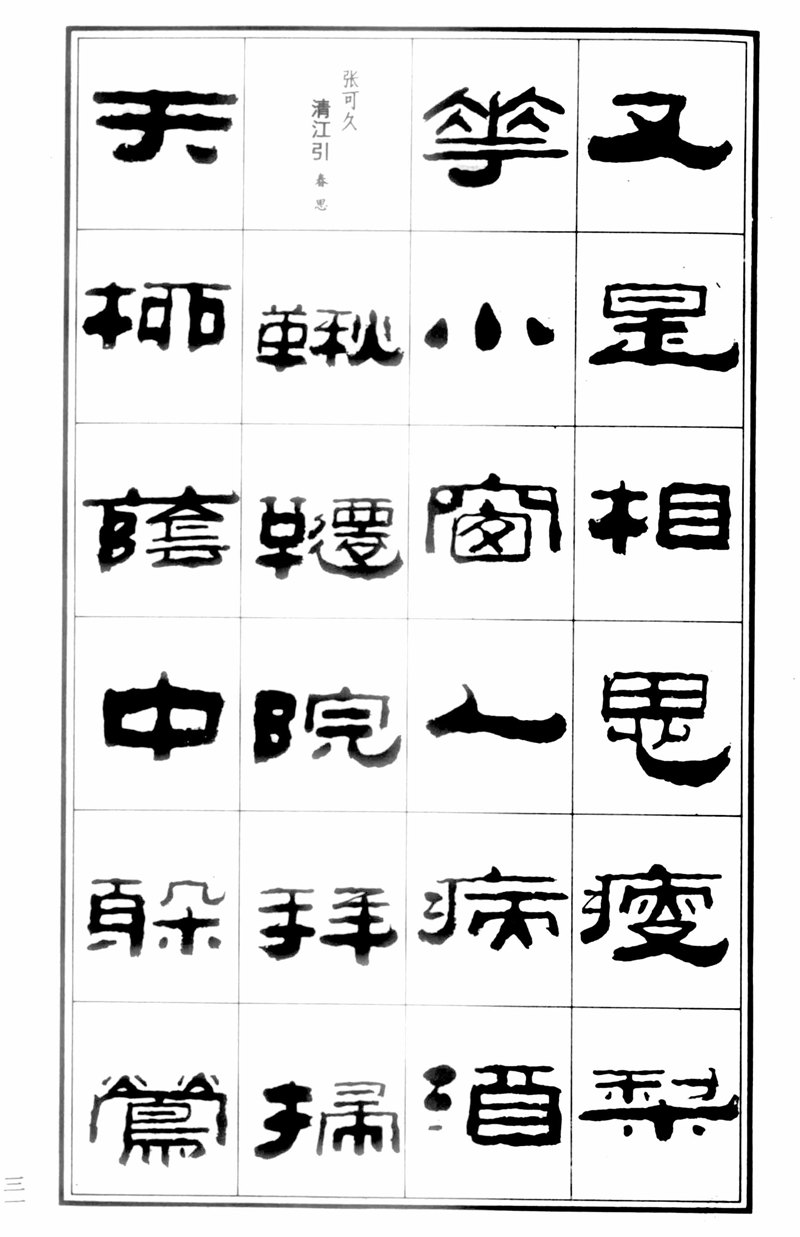 又是相思瘦梨
華小窗人病酒
张可久
清江引 春思
鞦韆院拜掃
天柳蔭中躲鶯
三一